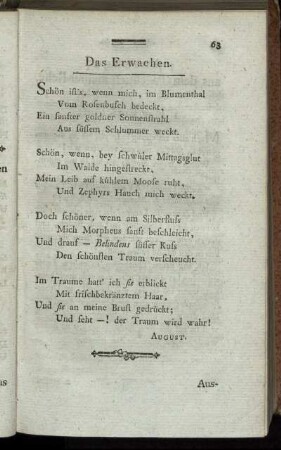 63
Das Erwachen.
Schön ist's, wenn mich, im Blumenthal
Vom Rosenbusch bedeckt,
Ein sanfter goldner Sonnenstrahl
Aus süssem Schlummer weckt.
Schön, wenn, bey schwüler Mittagsglut
Im Walde hingestreckt,
Mein Leib auf kühlem Moose ruht,
Und Zephyrs Hauch mich weckt.
Doch schöner, wenn am Silberfluss
Mich Morpheus sanft beschleicht,
Und drauf — Belindens süsser Kuss
Den schönsten Traum verscheucht.
Im Traume hatt' ich sie erblickt
Mit frischbekränztem Haar,
Und sie an meine Brust gedrückt;
Und seht —! der Traum wird wahr!
AUGUST.
Aus-